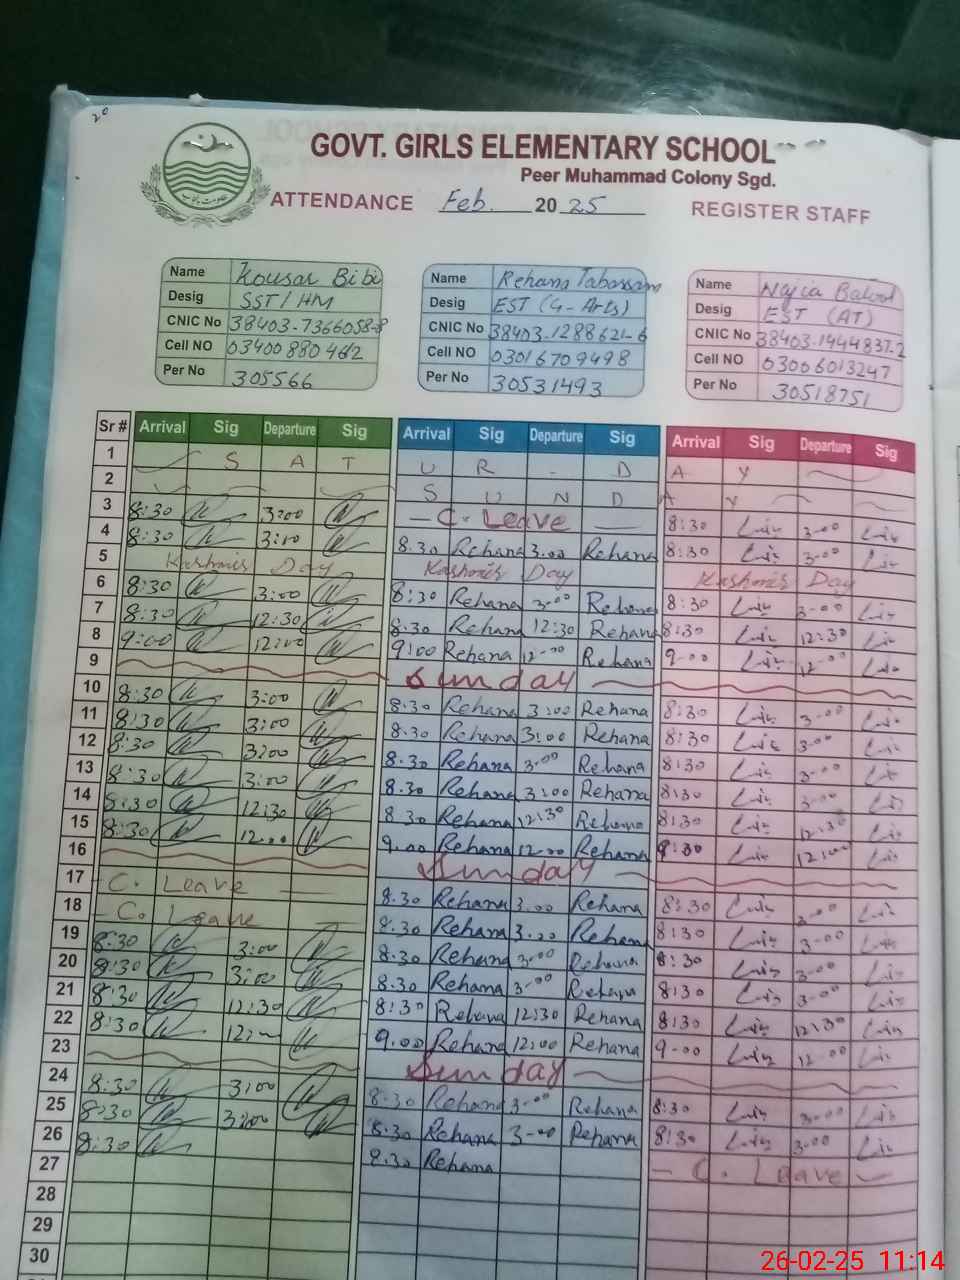 20
GOVT. GIRLS ELEMENTARY SCHOOL
Peer Muhammad Colony Sgd.
ATTENDANCE Feb. 20 25 REGISTER STAFF
Name Kousar Bibi
Desig SST/HM
CNIC No 38403-7366058-8
Cell NO 03400880462
Per No 305566
Name Rehana Tabassum
Desig EST (G-Arts)
CNIC No 38403-1288621-6
Cell NO 03016709498
Per No 30531493
Name Najia Batool
Desig EST (AT)
CNIC No 38403-1444837-2
Cell NO 03006013247
Per No 30518751
Sr # Arrival Sig Departure Sig Arrival Sig Departure Sig Arrival Sig Departure Sig
1 S A T U R - D A Y
2 S U N D A Y
3 8:30 3:00 - C. Leave 8:30 3-00
4 8:30 3:00 8.30 Rehana 3.00 Rehana 8:30 3-00
5 Kashmir Day Kashmir Day Kashmir Day
6 8:30 3:00 8:30 Rehana 3-00 Rehana 8:30 3-00
7 8:30 12:30 8:30 Rehana 12:30 Rehana 8:30 12:30
8 9:00 12:00 9:00 Rehana 12-00 Rehana 9-00 12-00
9 Sunday
10 8:30 3:00 8.30 Rehana 3:00 Rehana 8:30 3-00
11 8:30 3:00 8.30 Rehana 3:00 Rehana 8:30 3-00
12 8:30 3:00 8.30 Rehana 3-00 Rehana 8:30 3-00
13 8:30 3:00 8.30 Rehana 3:00 Rehana 8:30 3-00
14 8:30 12:30 8.30 Rehana 12:30 Rehana 8:30 12:30
15 8:30 12:00 9.00 Rehana 12-00 Rehana 9:30 12:00
16 Sunday
17 - C. Leave 8.30 Rehana 3.00 Rehana 8:30 3-00
18 - C. Leave 8.30 Rehana 3.00 Rehana 8:30 3-00
19 8:30 3:00 8.30 Rehana 3-00 Rehana 8:30 3-00
20 8:30 3:00 8.30 Rehana 3-00 Rehana 8:30 3-00
21 8:30 12:30 8:30 Rehana 12:30 Rehana 8:30 12:30
22 8:30 9.00 Rehana 12:00 Rehana 9-00 12-00
23 Sunday
24 8:30 3:00 8.30 Rehana 3-00 Rehana 8:30 3-00
25 8:30 3:00 8.30 Rehana 3-00 Rehana 8:30 3-00
26 8:30 8.30 Rehana - C. Leave
27
28
29
30
26-02-25 11:14